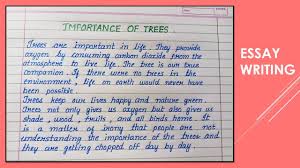 IMPORTANCE OF TREES
Trees are important in life. They provide
oxygen by consuming carbon dioxide from the
atmosphere to live life. The tree is our true
companion. If there were no trees in the
environment, life on earth would never have
been possible.
Trees keep our lives happy and nature green.
Trees not only gives us oxygen but also gives us
shade, wood, fruits, and all birds home. It
is a matter of irony that people are not
understanding the importance of the trees and
they are getting chopped off day by day.
ESSAY
WRITING